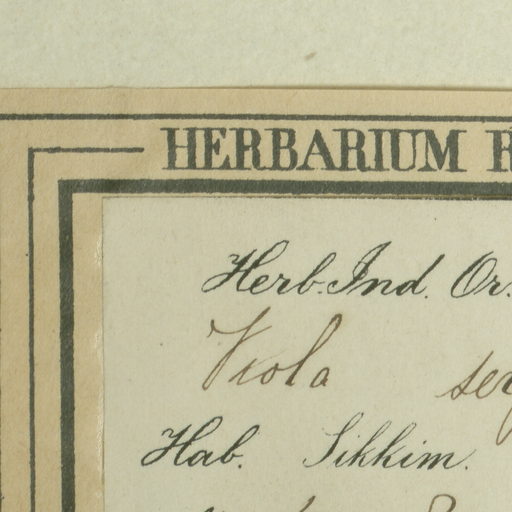 HERBARIUM
Herb. Ind. Or.
Viola
Hab. Sikkim.